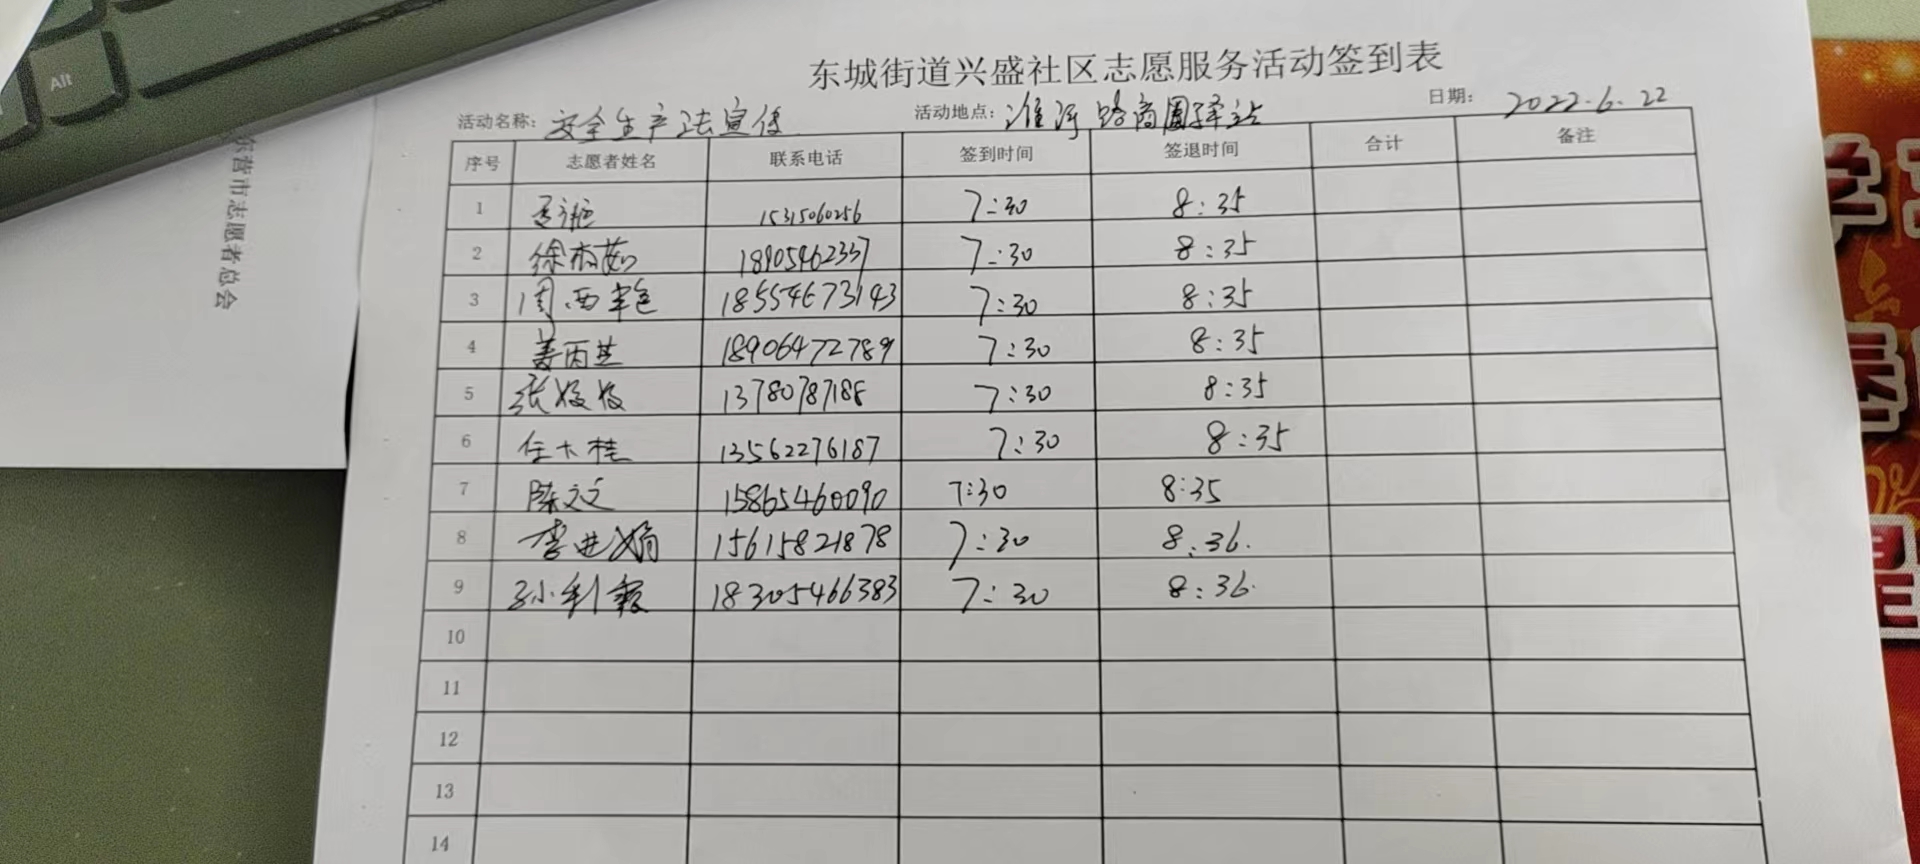 Alt
东营市志愿者总会
东城街道兴盛社区志愿服务活动签到表
活动名称: 安全生产法宣传 活动地点: 淮河路商圈驿站 日期: 2022.6.22
序号 志愿者姓名 联系电话 签到时间 签退时间 合计 备注
1 7:30 8:35
2 徐 茹 18905462337 7:30 8:35
3 周西艳 18554673143 7:30 8:35
4 姜丙芝 18906472789 7:30 8:35
5 张 13780787188 7:30 8:35
6 任 桂 13562276187 7:30 8:35
7 陈文文 15865460090 7:30 8:35
8 李进娟 15615821878 7:30 8:36.
9 孙利霞 18305466383 7:30 8:36.
10
11
12
13
14